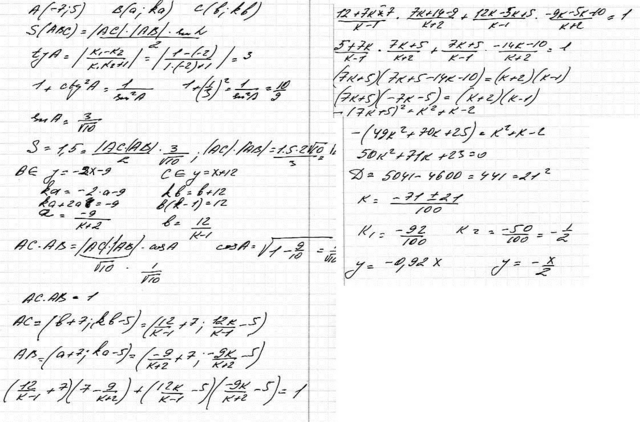 A(-7;5) B(a; ka) C(b; kb)
S(ABC) = |AC|·|AB|·sin A / 2
tg A = |(k₁-k₂)/(k₁k₂+1)| = |(1-(-2))/(1·(-2)+1)| = 3
1+ctg²A = 1/sin²A 1+(1/3)² = 1/sin²A = 10/9
sin A = 3/√10
S = 1,5 = |AC||AB|/2 · 3/√10 ; |AC|·|AB| = 1.5·2√10/3 =
B∈ y=-2x-9 C∈ y=x+12
ka = -2·a-9 kb = b+12
ka+2a = -9 b(k-1) = 12
a = -9/(k+2) b = 12/(k-1)
AC·AB = |AC|·|AB|·cosA cosA = √(1-9/10) = 1/√10
√10 · 1/√10
AC·AB = 1
AC = (b+7; kb-5) = (12/(k-1)+7; 12k/(k-1)-5)
AB = (a+7; ka-5) = (-9/(k+2)+7; -9k/(k+2)-5)
(12/(k-1)+7)(7-9/(k+2))+(12k/(k-1)-5)(-9k/(k+2)-5) = 1
(12+7k-7)/(k-1) · (7k+14-9)/(k+2) + (12k-5k+5)/(k-1) · (-9k-5k-10)/(k+2) = 1
(5+7k)/(k-1) · (7k+5)/(k+2) + (7k+5)/(k-1) · (-14k-10)/(k+2) = 1
(7k+5)(7k+5-14k-10) = (k+2)(k-1)
(7k+5)(-7k-5) = (k+2)(k-1)
-(7k+5)² = k²+k-2
-(49k²+70k+25) = k²+k-2
50k²+71k+23=0
D = 5041-4600 = 441 = 21²
k = (-71±21)/100
k₁ = -92/100 k₂ = -50/100 = -1/2
y = -0,92x y = -x/2